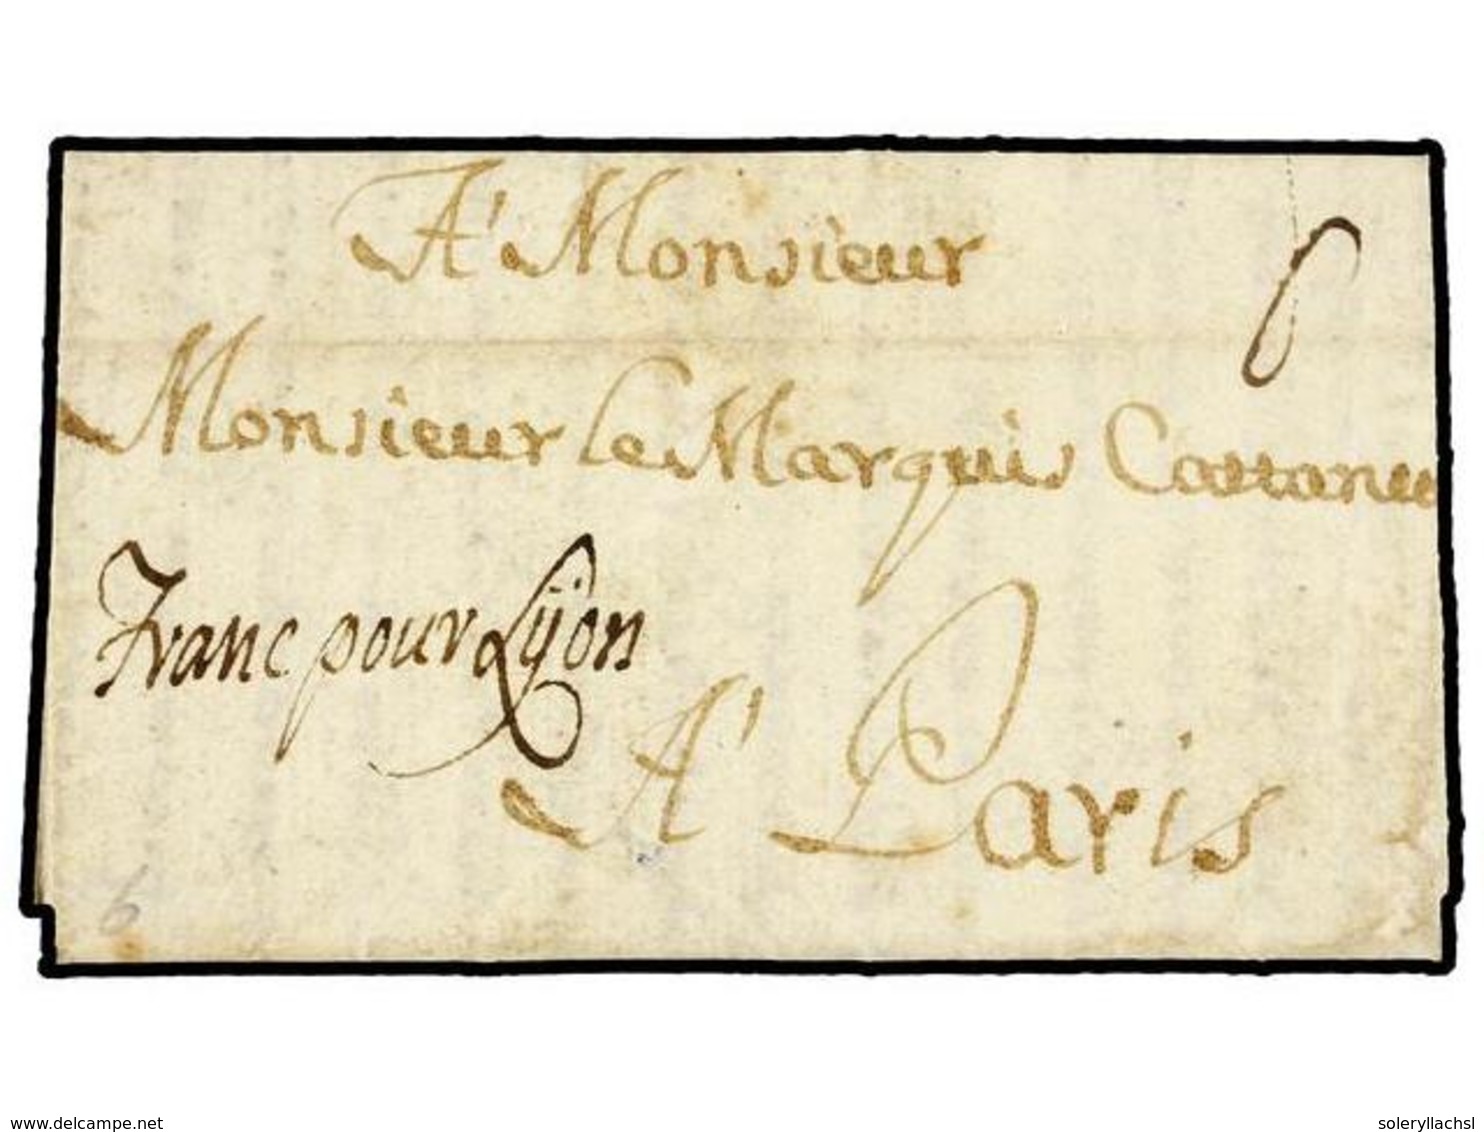 A' Monsieur
Monsieur le Marquis Cattaneo
Franc pour Lÿon
A' Paris
6
www.delcampe.net
soleryllachsl